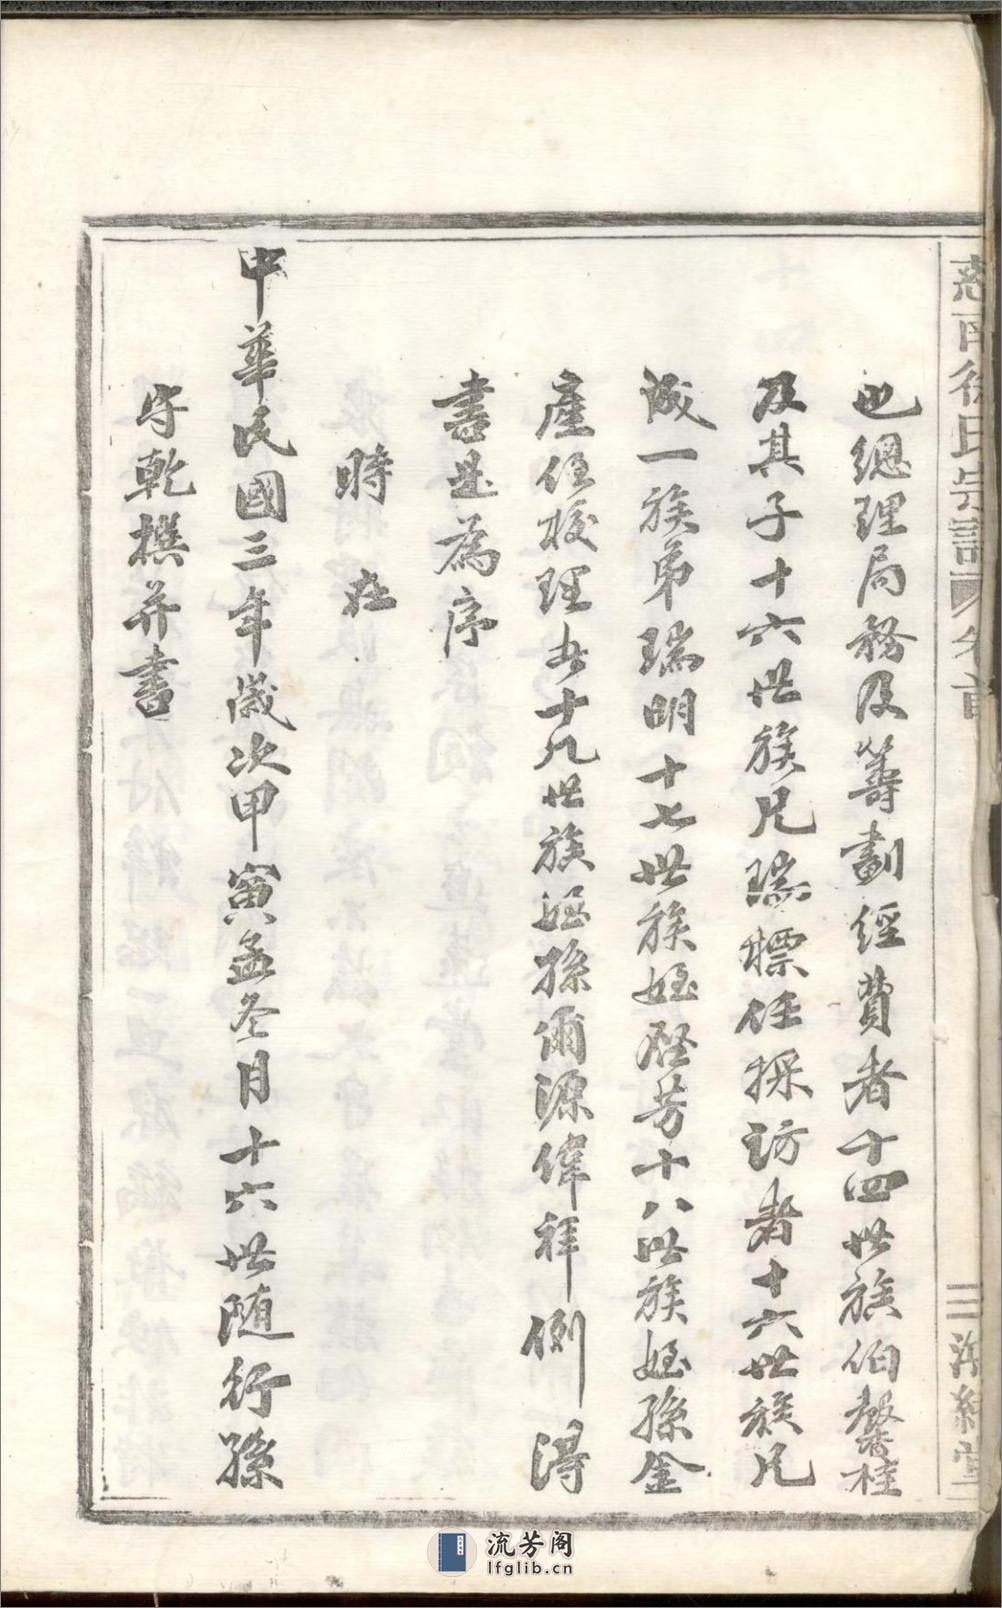 慈南徐氏宗譜 卷首 三
也總理局務及籌劃經費者十四世族伯馨桂
及其子十六世族兄瑞標任採訪者十六世族兄
誠一族弟瑞明十七世族姪啓芳十八世族姪孫金
產任校理者十八世族姪孫爾源偉祥例得
書是為序
時 在
中華民國三年歲次甲寅孟冬月十六世随行孫
守乾撰并書
流芳阁
lfglib.cn